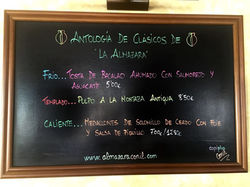 Antología de Clásicos de
"La Almazara"
Frío... Tosta de Bacalao Ahumado con Salmorejo y
Aguacate 5'00€
Templado... Pulpo a la Montaza Antigua 8'50€
Caliente... Medallones de Solomillo de Cerdo con Foie
y Salsa de Piquillo 7'00€/12'80€
www.almazaraconil.com